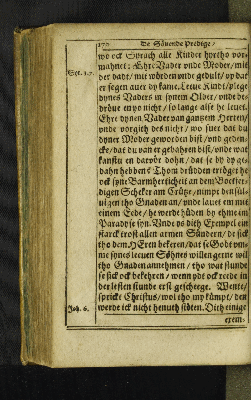 170 De Sövende Predige/
wo ock Syrach alle Kinder hyrtho vor-
mahnet: Ehre Vader unde Moder/ mit
Syr. 3. 7.
der daht/ mit wörden unde gedult/ up dat
er segen auer dy kame. Leue Kindt/ plege
dynes Vaders in synem Older/ unde be-
dröue en yo nicht/ so lange alse he leuet.
Ehre dynen Vader van gantzem Herten/
unde vorgith des nicht/ wo suer dat du
dyner Moder geworden bist/ und geden-
cke/ dat du van er gebahren bist/ unde wat
kanstu en darvör dohn/ dat se dy dy ge-
dahn hebben? Thom drüdden ertöget he
ock syne Barmherticheit an dem Bothfer-
digen Scheker am Crütze/ nimpt den sül-
uigen tho Gnaden an/ unde lauet em mit
einem Eede/ he werde hüden by ehme im
Paradyse syn. Unde ys dith Exempel ein
starck trost allen armen Sündern/ de sick
tho dem HEren bekeren/ dat se Godt vm-
me synes leuen Söhnes willen gerne wil
tho Gnaden annehmen/ tho wat stunde
se sick ock bekehren/ wenn ydt ock rede in
der lesten stunde erst geschege. Wente/
spricht Christus/ wol tho my kümpt/ den
Joh. 6.
werde ick nicht henuth stöten. Dith einige
exem-